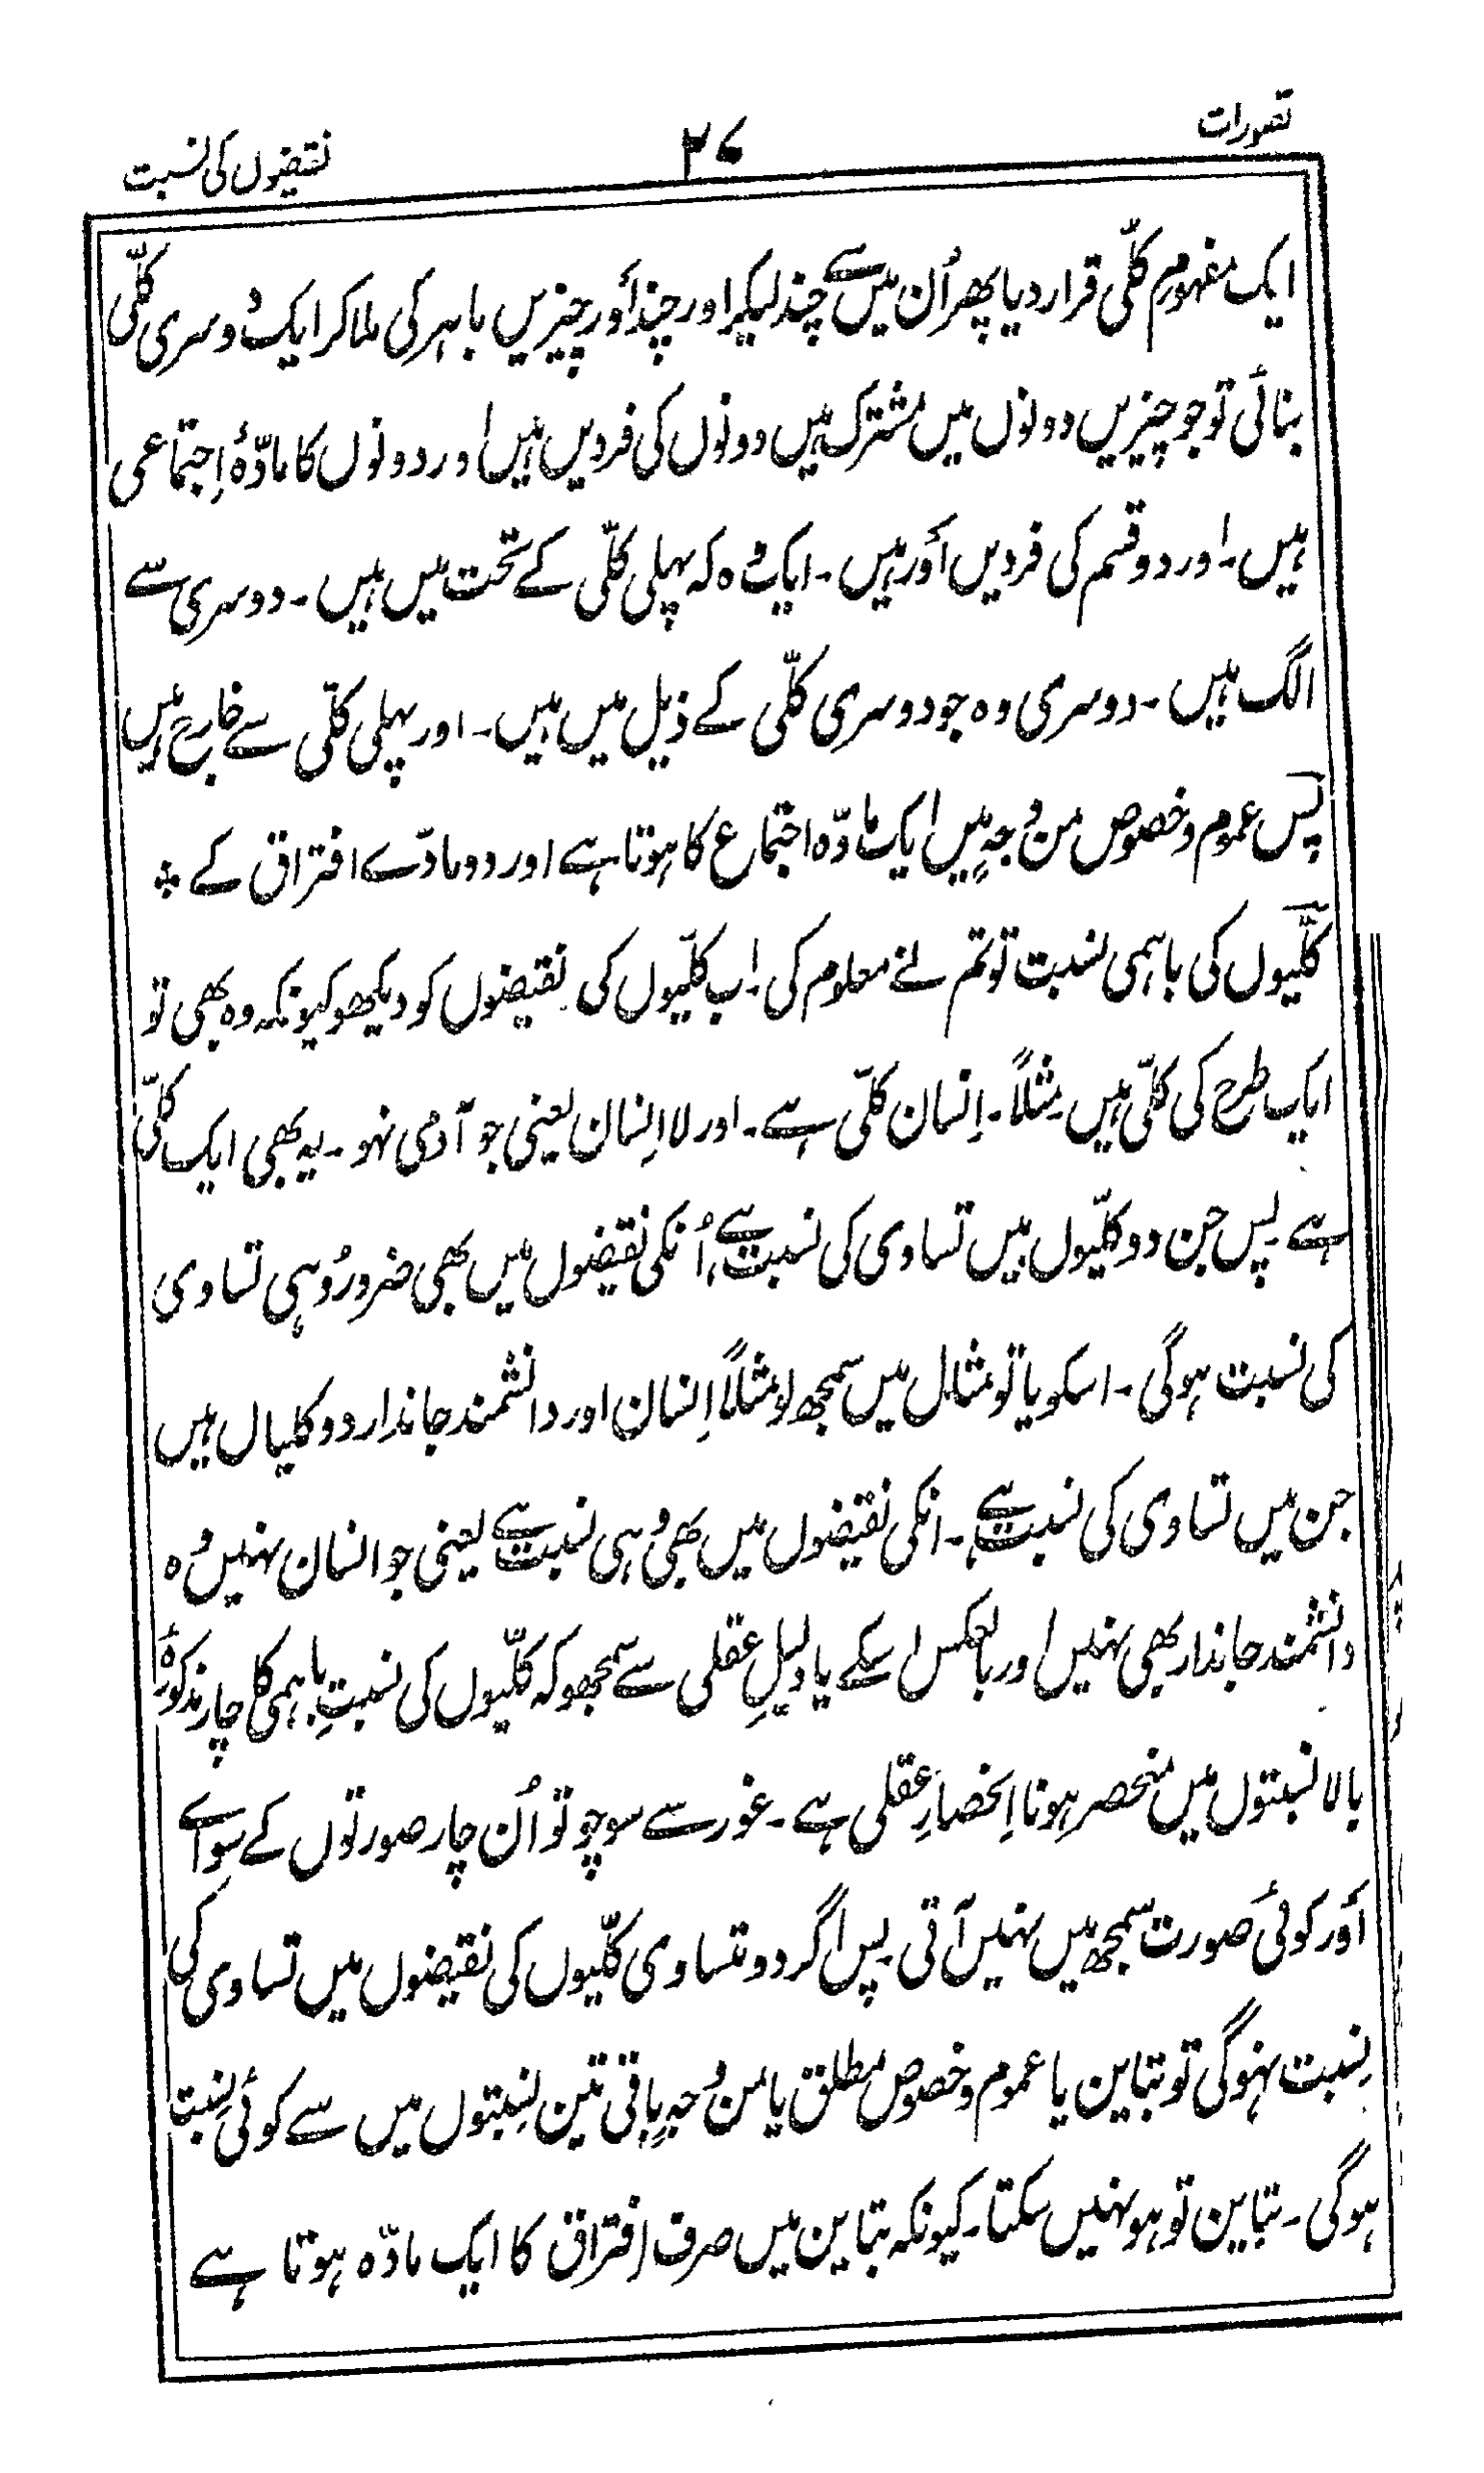 تصورات
۲۷
نقیضوں کی نسبت
ایک مفہوم کلّی قرار دیا پھر اُن میں سے چند لیکر اور چند اَور چیزیں باہر کی ملا کر ایک دُوسری کلّی
بنائی تو جو چیزیں دونوں میں مشترک ہیں دونوں کی فردیں ہیں اور دونوں کا مادّۂ اِجتماعی
ہیں۔ اور دو قسم کی فردیں اَور ہیں۔ ایک وُہ کہ پہلی کلّی کے تحت میں ہیں۔ دوسری سے
الگ ہیں۔ دوسری وہ جو دوسری کلّی کے ذیل میں ہیں۔ اور پہلی کلّی سے خارج ہیں
پس عموم و خصوص من وُجہٍ میں ایک مادّہ اجتماع کا ہوتا ہے اور دو مادّے افتراق کے ؞
کلّیوں کی باہمی نسبت تو تم نے معلوم کی۔ اب کلّیوں کی نقیضوں کو دیکھو کیونکہ وہ بھی تو
ایک طرح کی کلّی ہیں۔ مثلاً۔ اِنسان کلّی ہے۔ اور لا اِنسان یعنی جو آدمی نہو۔ یہ بھی ایک کلّی
ہے پس جن دو کلّیوں میں تساوی کی نسبت ہے اُنکی نقیضوں میں بھی ضرور وُہی تساوی
کی نسبت ہوگی۔ اسکو یا تو مثال میں سمجھ لو مثلاً اِنسان اور دانشمند جاندار دو کلیاں ہیں
جن میں تساوی کی نسبت ہے۔ انکی نقیضوں میں بھی وُہی نسبت ہے یعنی جو انسان نہیں وُہ
دانشمند جاندار بھی نہیں اور بالعکس اسکے یا دلیلِ عقلی سے سمجھو کہ کلّیوں کی نسبتِ باہمی کا چار مذکورۂ
بالا نسبتوں میں منحصر ہونا اِنحصارِ عقلی ہے۔ غور سے سوچو تو اُن چار صورتوں کے سِواے
اَور کوئی صورت سمجھ میں نہیں آتی۔ پس اگر دو متساوی کلّیوں کی نقیضوں میں تساوی کی
نِسبت نہوگی تو تباین یا عموم و خصوص مطلق یا من وُجہٍ باقی تین نِسبتوں میں سے کوئی نِسبت
ہوگی۔ تباین تو ہو نہیں سکتا۔ کیونکہ تباین میں صرف اِفتراق کا ایک مادّہ ہوتا ہے